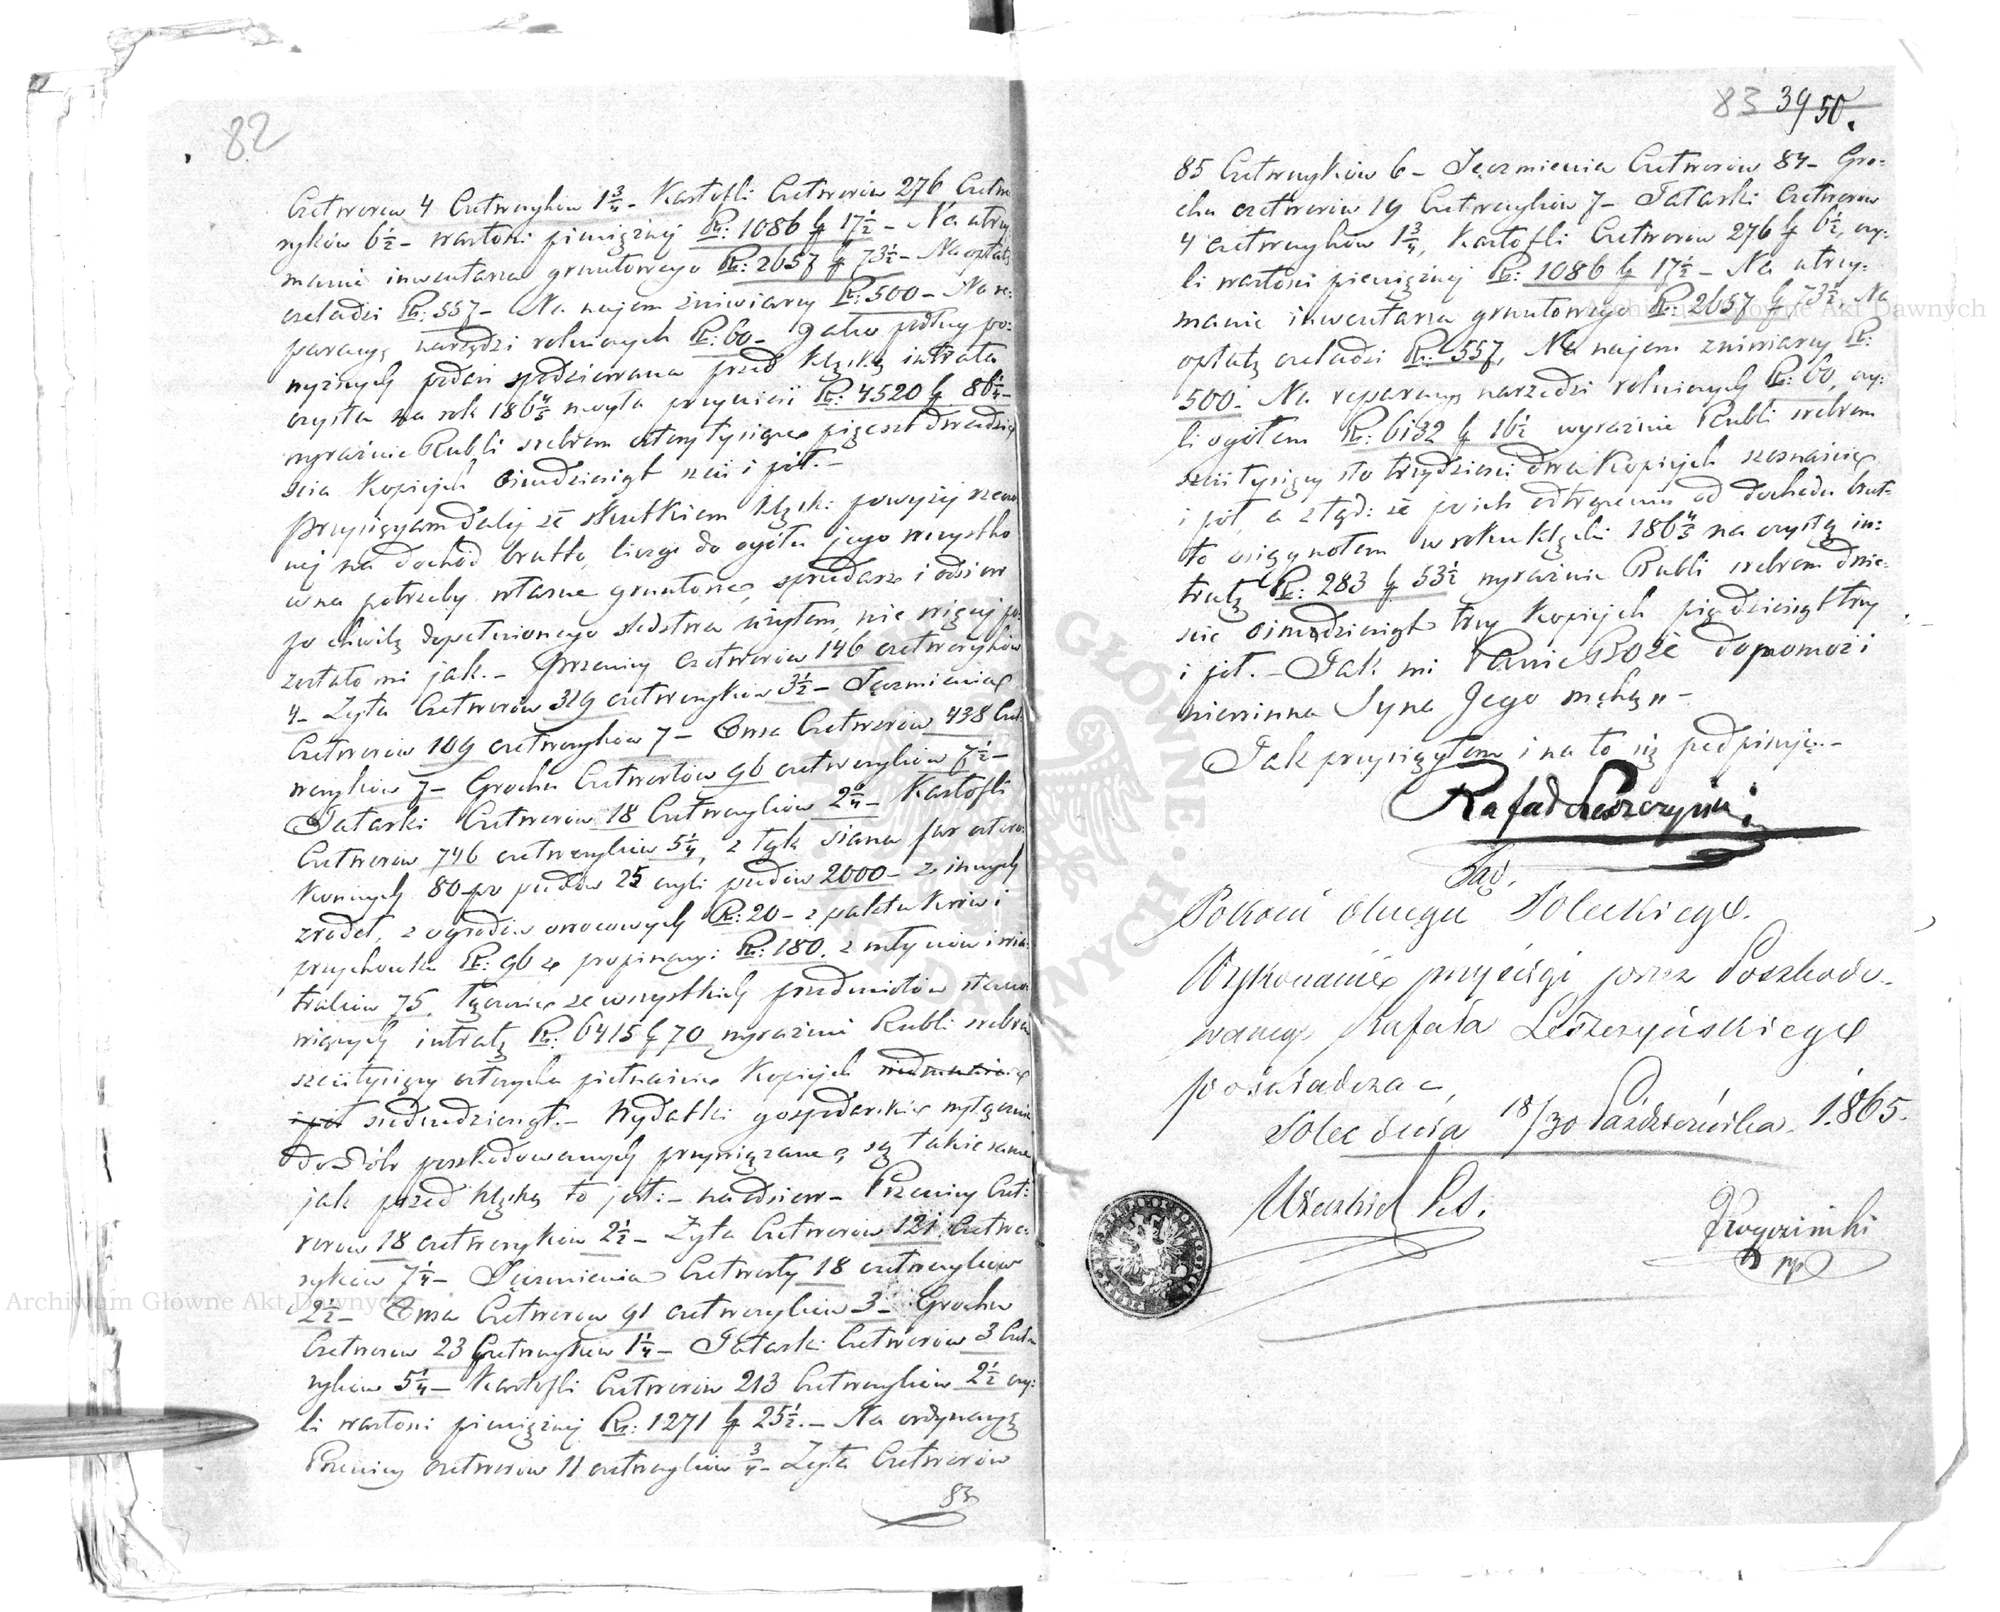 82
Czetwerow 4 Czetwerykow 1 3/4 – Kartofli Czetwerów 276 Czetwe
ryków 6 1/2 – wartości pieniężnéj Rs: 1086 k 17 1/2 – Na utrzy
manie inwentarza gruntowego Rs: 2657 k 73 1/2 – Na opłatę
czeladzi Rs: 557 – Na najem żniwiarzy Rs: 500 – Na re:
paracyę narzędzi rolniczych Rs: 60 – zatem podług po:
wyższych podań spodziewana przed klęską intrata
czysta za rok 186 4/5 mogła przynieść Rs: 4520 k 86 1/2 –
wyraźnie Rubli srebrem cztery tysiące pięcset dwadzie
ścia Kopiejek ośmdziesiąt sześć i pół. –
Przysięgam daléj że skutkiem klęski powyżéj rzeczo
néj na dochód brutto, licząc do ogółu jego wszystko
co na potrzeby własne gruntowe, sprzedarz i odsiew
po chwilę dopełnionego śledztwa użyłem, nie więcéj po
zostało mi jak. – Pszenicy Czetwerów 146 czetweryków
4 – Żyta Czetwerów 319 czetweryków 3 1/2 – Jęczmienia
Czetwerów 109 czetweryków 7 – Owsa Czetwerów 438 Czet
weryków 7 – Grochu Czetwertów 96 czetweryków 7 1/2 –
Tatarki Czetwerów 18 Czetweryków 2 3/4 – Kartofli
Czetwerow 746 czetweryków 5 1/4, z łąk siana far cztero
konnych 80 po pudów 25 czyli pudów 2000 – z innych
źródeł, z ogrodów owocowych Rs: 20 – z paktu krów i
przychowku Rs: 96 z propinacyi Rs: 180. z młynów i wia
traków 75. Łącznie ze wszystkich przedmiotów stano
wiących intratę Rs: 6415 k 70 wyraźnie Rubli srebrem
sześć tysięcy czterysta piętnaście Kopiejek siedmnaście
i pół siedmdziesiąt. – Wydatki gospodarskie wyłącznie
do Dóbr poszkodowanych przywiązane, są takie same
jak przed klęską to jest: – na odsiew – Pszenicy Czet:
werow 18 czetweryków 2 1/2 – Żyta Czetwerów 121 Czetwe:
ryków 7 1/4 – Jęczmienia Czetwerty 18 czetweryków
2 1/2 – Owsa Czetwerow 91 czetweryków 3 – Grochu
Czetwerow 23 Czetweryków 1 1/4 – Tatarki Czetwerów 3 Czetwe
ryków 5 1/4 – Kartofli Czetwerów 213 Czetweryków 2 1/2 czy:
li wartości pieniężnéj Rs: 1271 k 25 1/2. – Na ordynaryę
Pszenicy czetwerow 11 czetweryków 3/4 – Żyta Czetwerów
83
83 39 50.
85 Czetweryków 6 – Jęczmienia Czetwerów 84 – Gro:
chu czetwerów 19 Czetweryków 7 – Tatarki Czetwerow
4 czetweryków 1 3/4, Kartofli Czetwerów 276 k 6 1/2, czy:
li wartości pieniężnéj Rs: 1086 k 17 1/2 – Na utrzy:
manie inwentarza gruntowego Rs: 2657 k 73 1/2, Na
opłatę czeladzi Rs: 557, Na najem żniwiarzy Rs:
500 – Na reparacyę narzędzi rolniczych Rs: 60, czy:
li ogółem Rs: 6132 k 16 1/2 wyraźnie Rubli srebrem
sześć tysięcy sto trzydzieści dwa Kopiejek szesnaście
i pół, a ztąd: że po ich odtrąceniu od dochodu brut:
to osiągnołem w roku klęski 186 4/5 na czystą in:
tratę Rs: 283 k 53 1/2 wyraźnie Rubli srebrem dwie:
ście ośmdziesiąt trzy Kopiejek pięćdziesiąt trzy
i pół. – Tak mi Panie Boże dopomoż i
niewinna Syna Jego męka" –
Tak przysięgłem i na to się podpisuję. –
Rafał Leszczyński
Sąd,
Pokoiu Okręgu Soleckiego.
Wykonanie przysięgi przez Poszkodo-
wanego Rafała Leszczyńskiego
poświadcza,
Solec dnia 18/30 Października 1865.
P.S.
Rogoziński
Archiwum Główne Akt Dawnych
Archiwum Główne Akt Dawnych